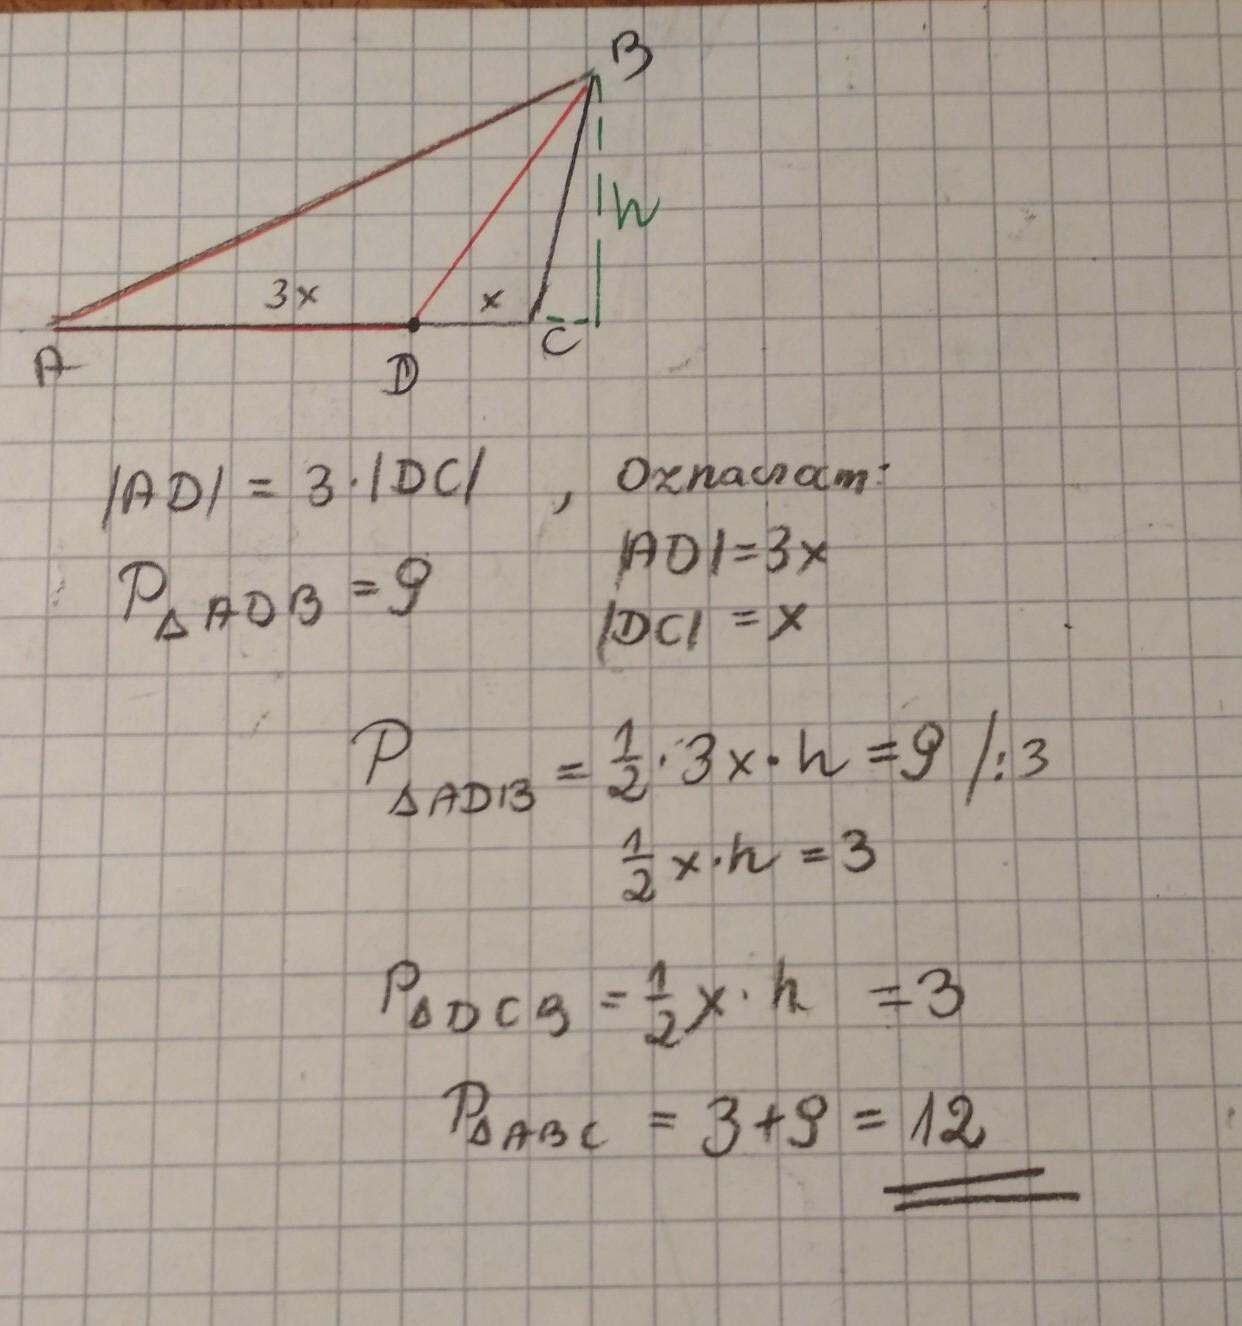 B
h
3x x
A D C
|AD| = 3·|DC| , Oznaczam:
P△ADB = 9 |AD|=3x
|DC| = x
P△ADB = 1/2 · 3x · h = 9 /:3
1/2 x · h = 3
P△DCB = 1/2 x · h = 3
P△ABC = 3+9 = 12